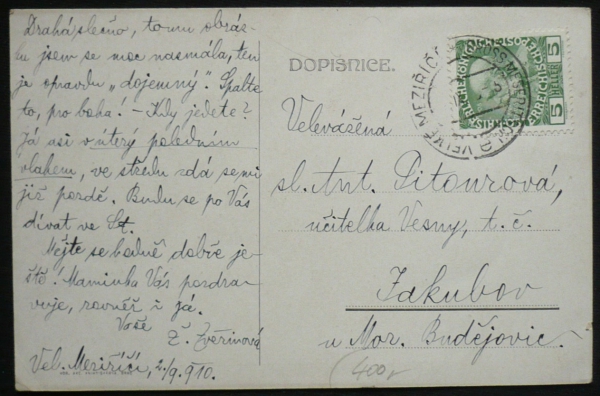 Drahá slečno, tomu obráz-
ku jsem se moc nasmála, ten
je opravdu „dojemný". Spalte
to, pro boha! – Kdy jedete?
Já asi v úterý poledním
vlakem, ve středu zdá se mi
již pozdě. Budu se po Vás
dívat ve St.
Mějte se hodně dobře je-
ště! Maminka Vás pozdra-
vuje, rovněž i já.
Vaše
Ž. Zvěřinová
Vel. Meziříčí, 2/9. 910.
DOPISNICE.
Velevážená
sl. Ant. Pitourová,
učitelka Vesny, t. č.
Jakubov
u Mor. Budějovic.
400,
5 HELLER 5
VELKÉ MEZIŘÍČÍ